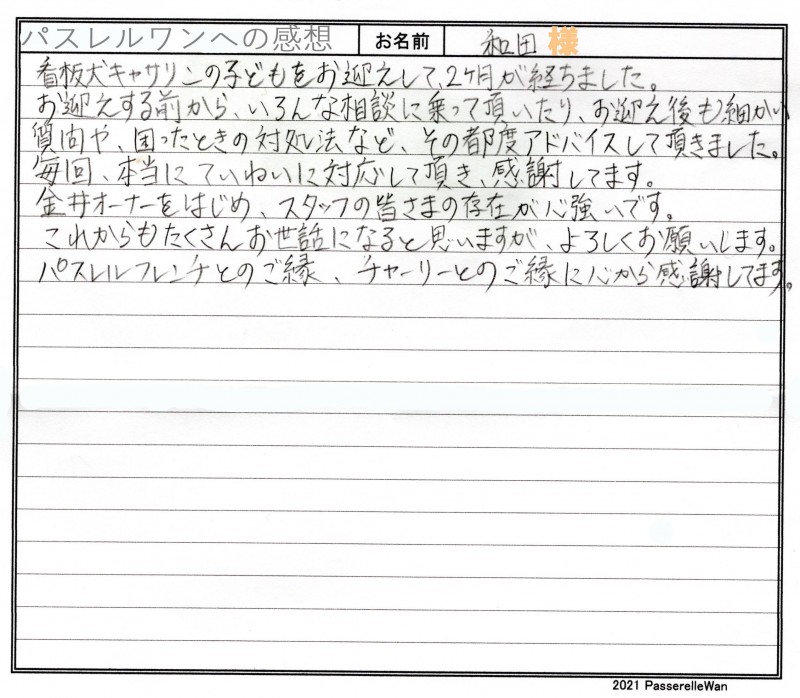 パスレルワンへの感想 お名前 和田 様
看板犬キャサリンの子どもをお迎えして、2ヶ月が経ちました。
お迎えする前から、いろんな相談に乗って頂いたり、お迎え後も細かい
質問や、困ったときの対処法など、その都度アドバイスして頂きました。
毎回、本当にていねいに対応して頂き、感謝してます。
金井オーナーをはじめ、スタッフの皆さまの存在が心強いです。
これからもたくさんお世話になると思いますが、よろしくお願いします。
パスレルフレンチとのご縁、チャーリーとのご縁に心から感謝してます。
2021 PasserelleWan